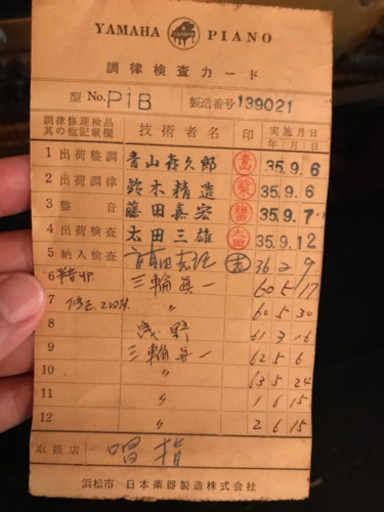 YAMAHA PIANO
調律検査カード
型 No. P1B 製造番号 139021
調律修理検品其の他記載欄 技術者名 印 実施月日 年 月 日
1 出荷整調 青山喜久郎 35.9.6
2 出荷調律 鈴木精造 35.9.6
3 整音 藤田嘉宏 35.9.7
4 出荷検査 太田三雄 太田 35.9.12
5 納入検査 36 2 9
6 三輪真一 60 5 17
7 〃 60 5 30
8 浅野 61 3 16
9 三輪真一 62 5 6
10 〃 63 5 24
11 〃 1 6 15
12 〃 2 6 15
取扱店
浜松市 日本楽器製造株式会社